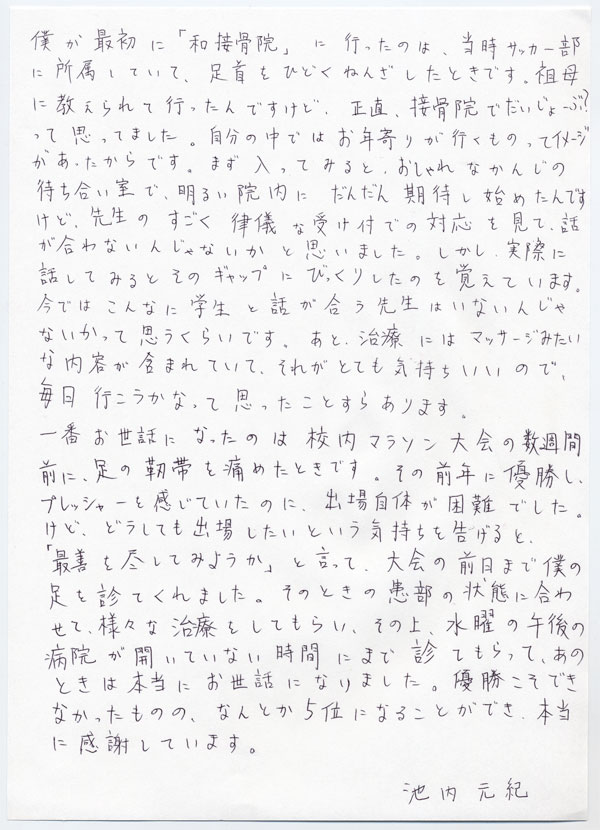 僕が最初に「和接骨院」に行ったのは、当時サッカー部
に所属していて、足首をひどくねんざしたときです。祖母
に教えられて行ったんですけど、正直、接骨院でだいじょーぶ?
って思ってました。自分の中ではお年寄りが行くものってイメージ
があったからです。まず入ってみると、おしゃれなかんじの
待ち合い室で、明るい院内にだんだん期待し始めたんです
けど、先生のすごく律儀な受け付での対応を見て、話
が合わないんじゃないかと思いました。しかし、実際に
話してみるとそのギャップにびっくりしたのを覚えています。
今ではこんなに学生と話が合う先生はいないんじゃ
ないかって思うくらいです。あと、治療にはマッサージみたい
な内容が含まれていて、それがとても気持ちいいので、
毎日行こうかなって思ったことすらあります。
一番お世話になったのは校内マラソン大会の数週間
前に、足の靭帯を痛めたときです。その前年に優勝し、
プレッシャーを感じていたのに、出場自体が困難でした。
けど、どうしても出場したいという気持ちを告げると、
「最善を尽してみようか」と言って、大会の前日まで僕の
足を診てくれました。そのときの患部の状態に合わ
せて、様々な治療をしてもらい、その上、水曜の午後の
病院が開いていない時間にまで診てもらって、あの
ときは本当にお世話になりました。優勝こそでき
なかったものの、なんとか5位になることができ、本当
に感謝しています。
池内元紀